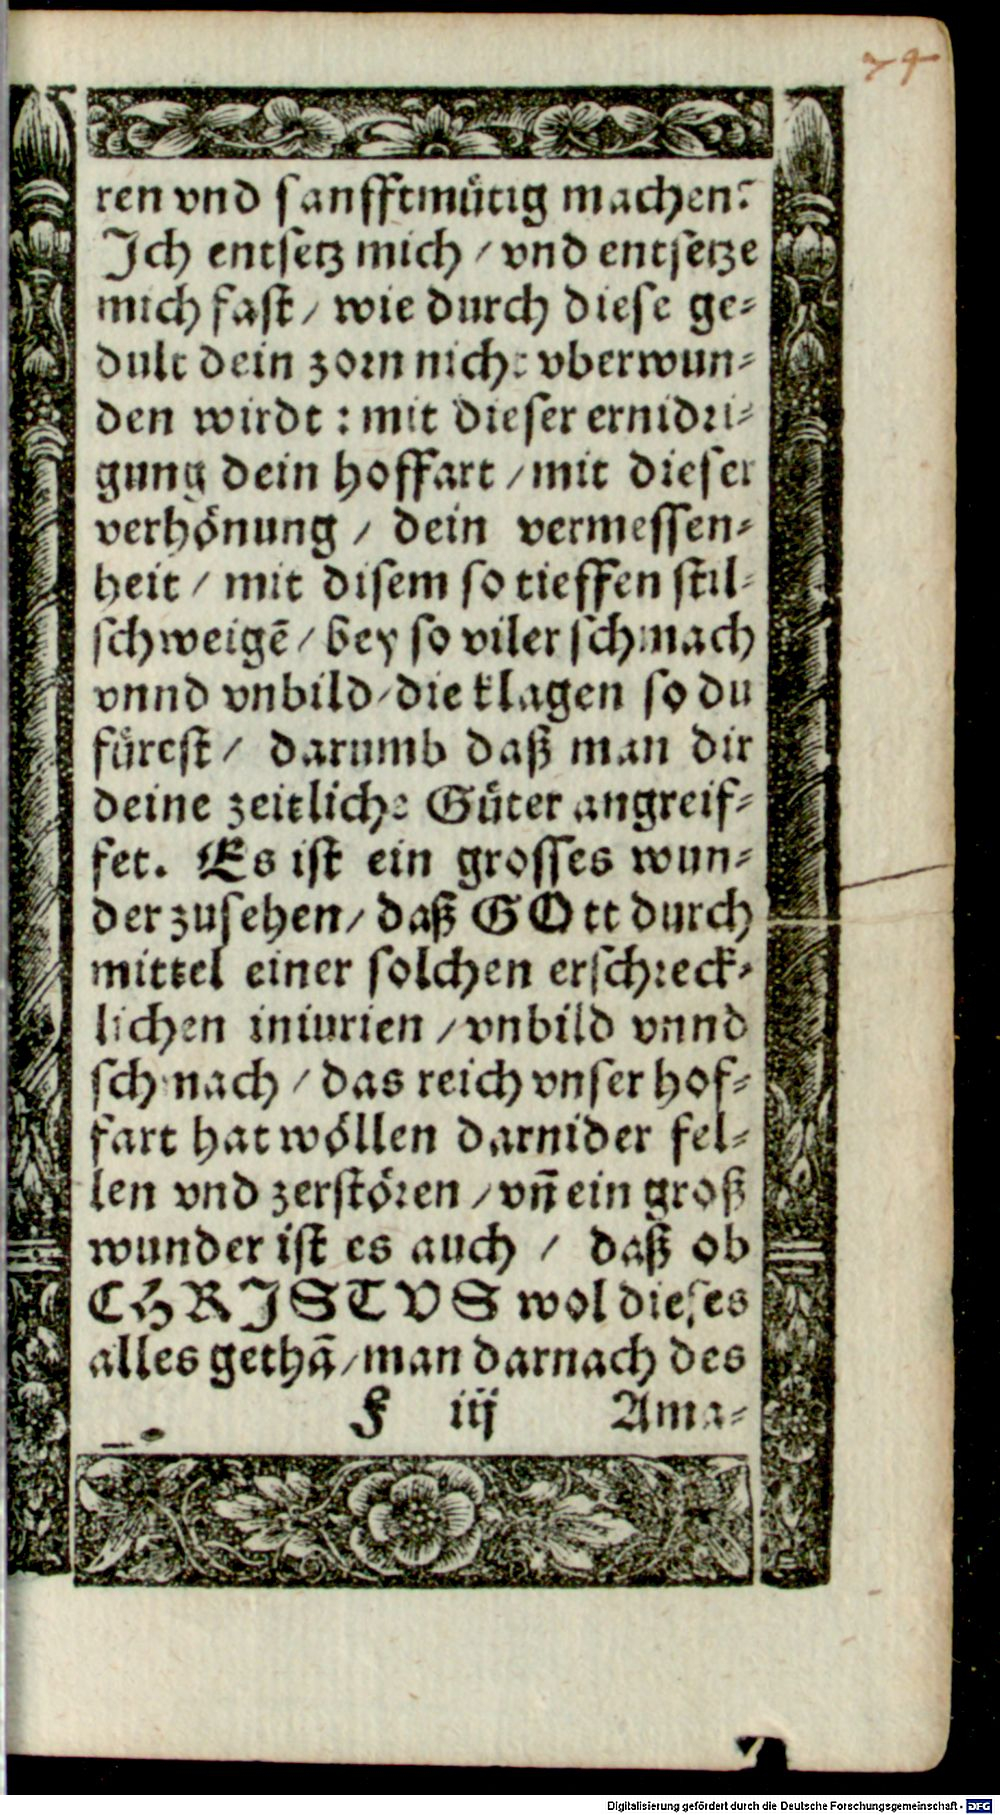 ren vnd sanfftmuͤtig machen?
Ich entsetz mich / vnd entsetze
mich fast / wie durch diese ge⸗
dult dein zorn nicht vberwun⸗
den wirdt : mit dieser ernidri⸗
gung dein hoffart / mit dieser
verhoͤnung / dein vermessen⸗
heit / mit disem so tieffen stil⸗
schweigẽ / bey so viler schmach
vnnd vnbild / die klagen so du
fuͤrest / darumb daß man dir
deine zeitliche Guͤter angreif⸗
fet. Es ist ein grosses wun⸗
der zusehen / daß GOtt durch
mittel einer solchen erschreck⸗
lichen iniurien / vnbild vnnd
schmach / das reich vnser hof⸗
fart hat woͤllen darnider fel⸗
len vnd zerstoͤren / vñ ein groß
wunder ist es auch / daß ob
CHRISTVS wol dieses
alles gethã / man darnach des
F iij Ama⸗
Digitalisierung gefördert durch die Deutsche Forschungsgemeinschaft - DFG